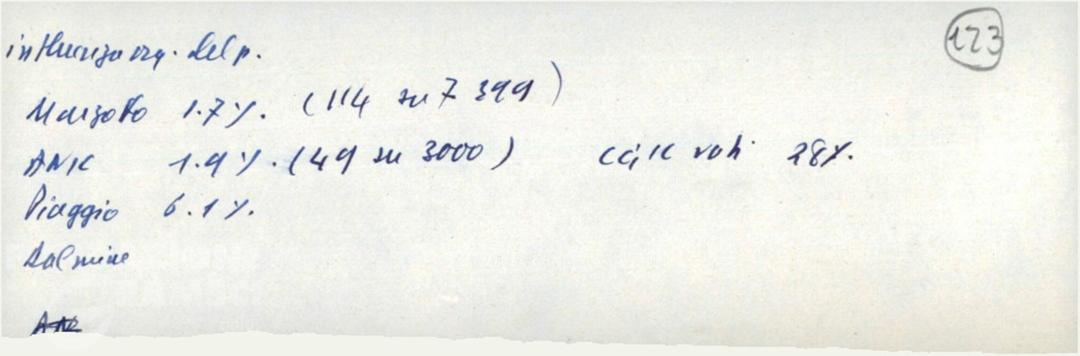 123
influenza org. del p.
Marzotto 1.7%. (114 su 7 399)
ANIC 1.9%. (49 su 3000) CGIL voti 28%.
Piaggio 6.1%.
Dalmine